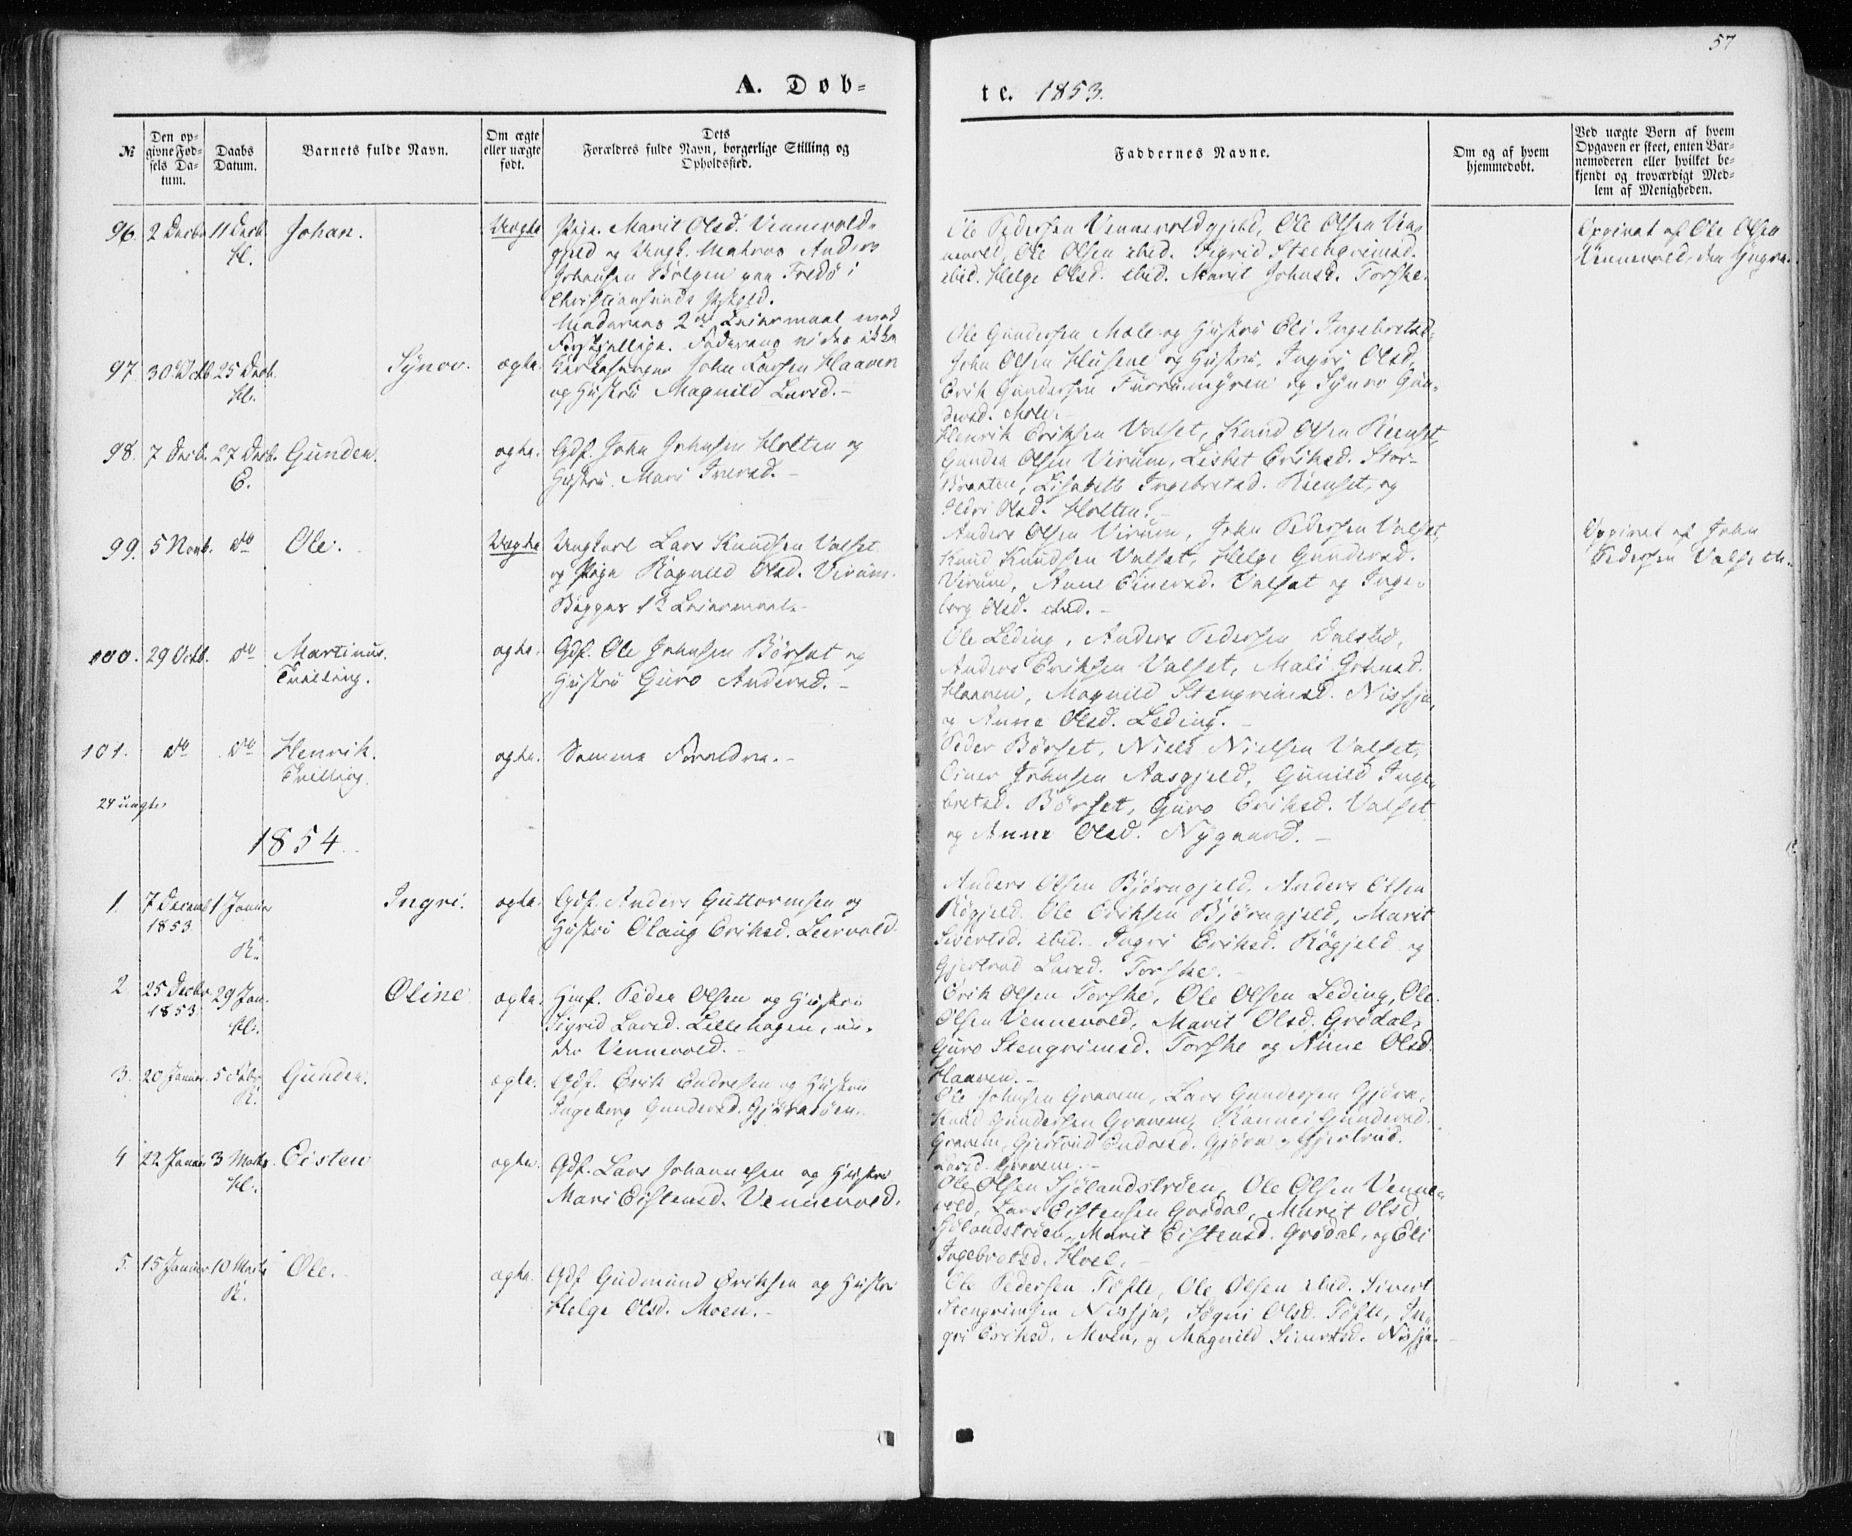 57
A. Døb-
te. 1853.
№
Den op-
givne Fød-
sels Da-
tum.
Daabs
Datum.
Barnets fulde Navn.
Om ægte
eller uægte
født.
Dets
Forældres fulde Navn, borgerlige Stilling og
Opholdssted.
Faddernes Navne.
Om og af hvem
hjemmedøbt.
Ved uægte Børn af hvem
Opgaven er skeet, enten Bar-
nemoderen eller hvilket be-
kjendt og troværdigt Med-
lem af Menigheden.
96. 2 Decbr 11 Decb. Johan. Uægte Pige Marit Olsd. Vennevold-
H. gjeld og Ungk. Matros Anders
Johansen Bolgen paa Fredø i
Christiansunds
Moderens 2det Leiermaal med
Forskjellige. Faderens vides ikke
Ole Pedersen Vennevoldgjeld, Ole Olsen Ven-
nevold, Ole Olsen ibid. Sigrid Steengrimsd.
ibid. Helge Olsd. ibid. Marit Johnsd. Torske.
Opgivet af Ole Olsen
Vennevold, den Yngre.
97. 30 Octb. 25 Decb. Synov. ægte. John Larsen Haaven
H. og Hustru Magnild Larsd.-
Ole Gundersen Mæle og Hustru Eli Ingebretsd.
John Olsen Husene og Hustru, Ingri Olsd.
Erik Gundersen Furrumyren og Synov Gun-
dersd. Mele.-
98. 7 Decb. 27 Decb. Gunder. ægte. Gdf. John Johnsen Holten og
E. Hustru Mari Iversd.-
Henrik Eriksen Valset, Knud Olsen Riemset,
Gunder Olsen Virum, Lisbet Eriksd. Stor-
Braaten, Lisabeth Ingebretsd. Riemset, og
Ildri Olsd. Holten.-
99. 5 Novb. do Ole. Uægte Ungkarl Lars Knudsen Valset
og Pige Ragnild Olsd. Virum.
Begges 1te Leiermaal.-
Anders Olsen Virum, John Pedersen Valset,
Knud Knudsen Valset, Helge Gundersd.
Virum, Anne Einersd. Valset og Inge-
borg Olsd. ibid.-
Opgivet af John
Pedersen Valseth.
100. 29 Octb. do Martinus. ægte. Gdf. Ole Johnsen Børset og
Tvilling. Hustru Guro Andersd.-
Ole Leding, Anders Pedersen Dalsbø,
Anders Eriksen Valset, Mali Johnsd.
Haaven, Magnild Stengrimsd. Nisja,
og Anne Olsd. Leding.-
101. do do Henrik. ægte. Samme Forældre.-
Tvilling.
Peder Børset, Niels Nielsen Valset,
Einer Johnsen Aasgjeld, Gunild Inge-
bretsd. Børset, Guro Eriksd. Valset
og Anne Olsd. Nygaard.-
24 uægte
1854.
1. 7 Decemb 1 Januar Ingri. ægte. Gdf. Anders Guttormsen og
1853 Hustru Olaug Eriksd. Leervold
R.
Anders Olsen Bjørngjeld. Anders Olsen
Røgjeld. Ole Eriksen Bjørngjeld, Marit
Sivertsd. ibid. Ingri Eriksd. Røgjeld og
Gjertrud Larsd. Torske.-
2 25 Decbr. 29 Jan. Oline ægte. Hmf. Peder Olsen og Hustru
1853. H. Sigrid Larsd. Lillehagen, un-
der Vennevold.-
Erik Olsen Torske, Ole Olsen Leding, Ole
Olsen Vennevold, Marit Olsd. Grødal,
Guro Stengrimsd. Torske og Anne Olsd.
Haaven.-
3. 20 Januar 5 Febr. Gunder. ægte. Gdf. Erik Endresen og Hustru
R. Ingeborg Gundersd. Gjøraøien.
Ole Johnsen Gravem, Lars Gundersen Gjøra,
Knud Gundersen Gravem, Rannei Gundersd.
Gravem, Gjertrud Endresd. Gjøra og Gjertrud.
Larsd. Gravem.-
4 22 Januar 3 Marts. Eisten ægte. Gdf. Lars Johannesen og Hustru
H. Mari Eistensd. Vennevold.
Ole Olsen Sjølandstrøen, Ole Olsen Venne-
vold, Lars Eistensen Grødal, Marit Olsd.
Sjølandstrøen, Marit Eistensd. Grødal, og Eli
Ingebretsd. Hoel.-
5. 15 Januar 10 Marts Ole. ægte. Gdf Gudmund Eriksen og Hustru
R. Helge Olsd. Moen.-
Ole Pedersen Tofte, Ole Olsen ibid. Sivert
Stengrimsen Nisja, Søgni Olsd. Tofte, In-
gri Eriksd. Moen, og Magnild Sivertsd. Nisja.